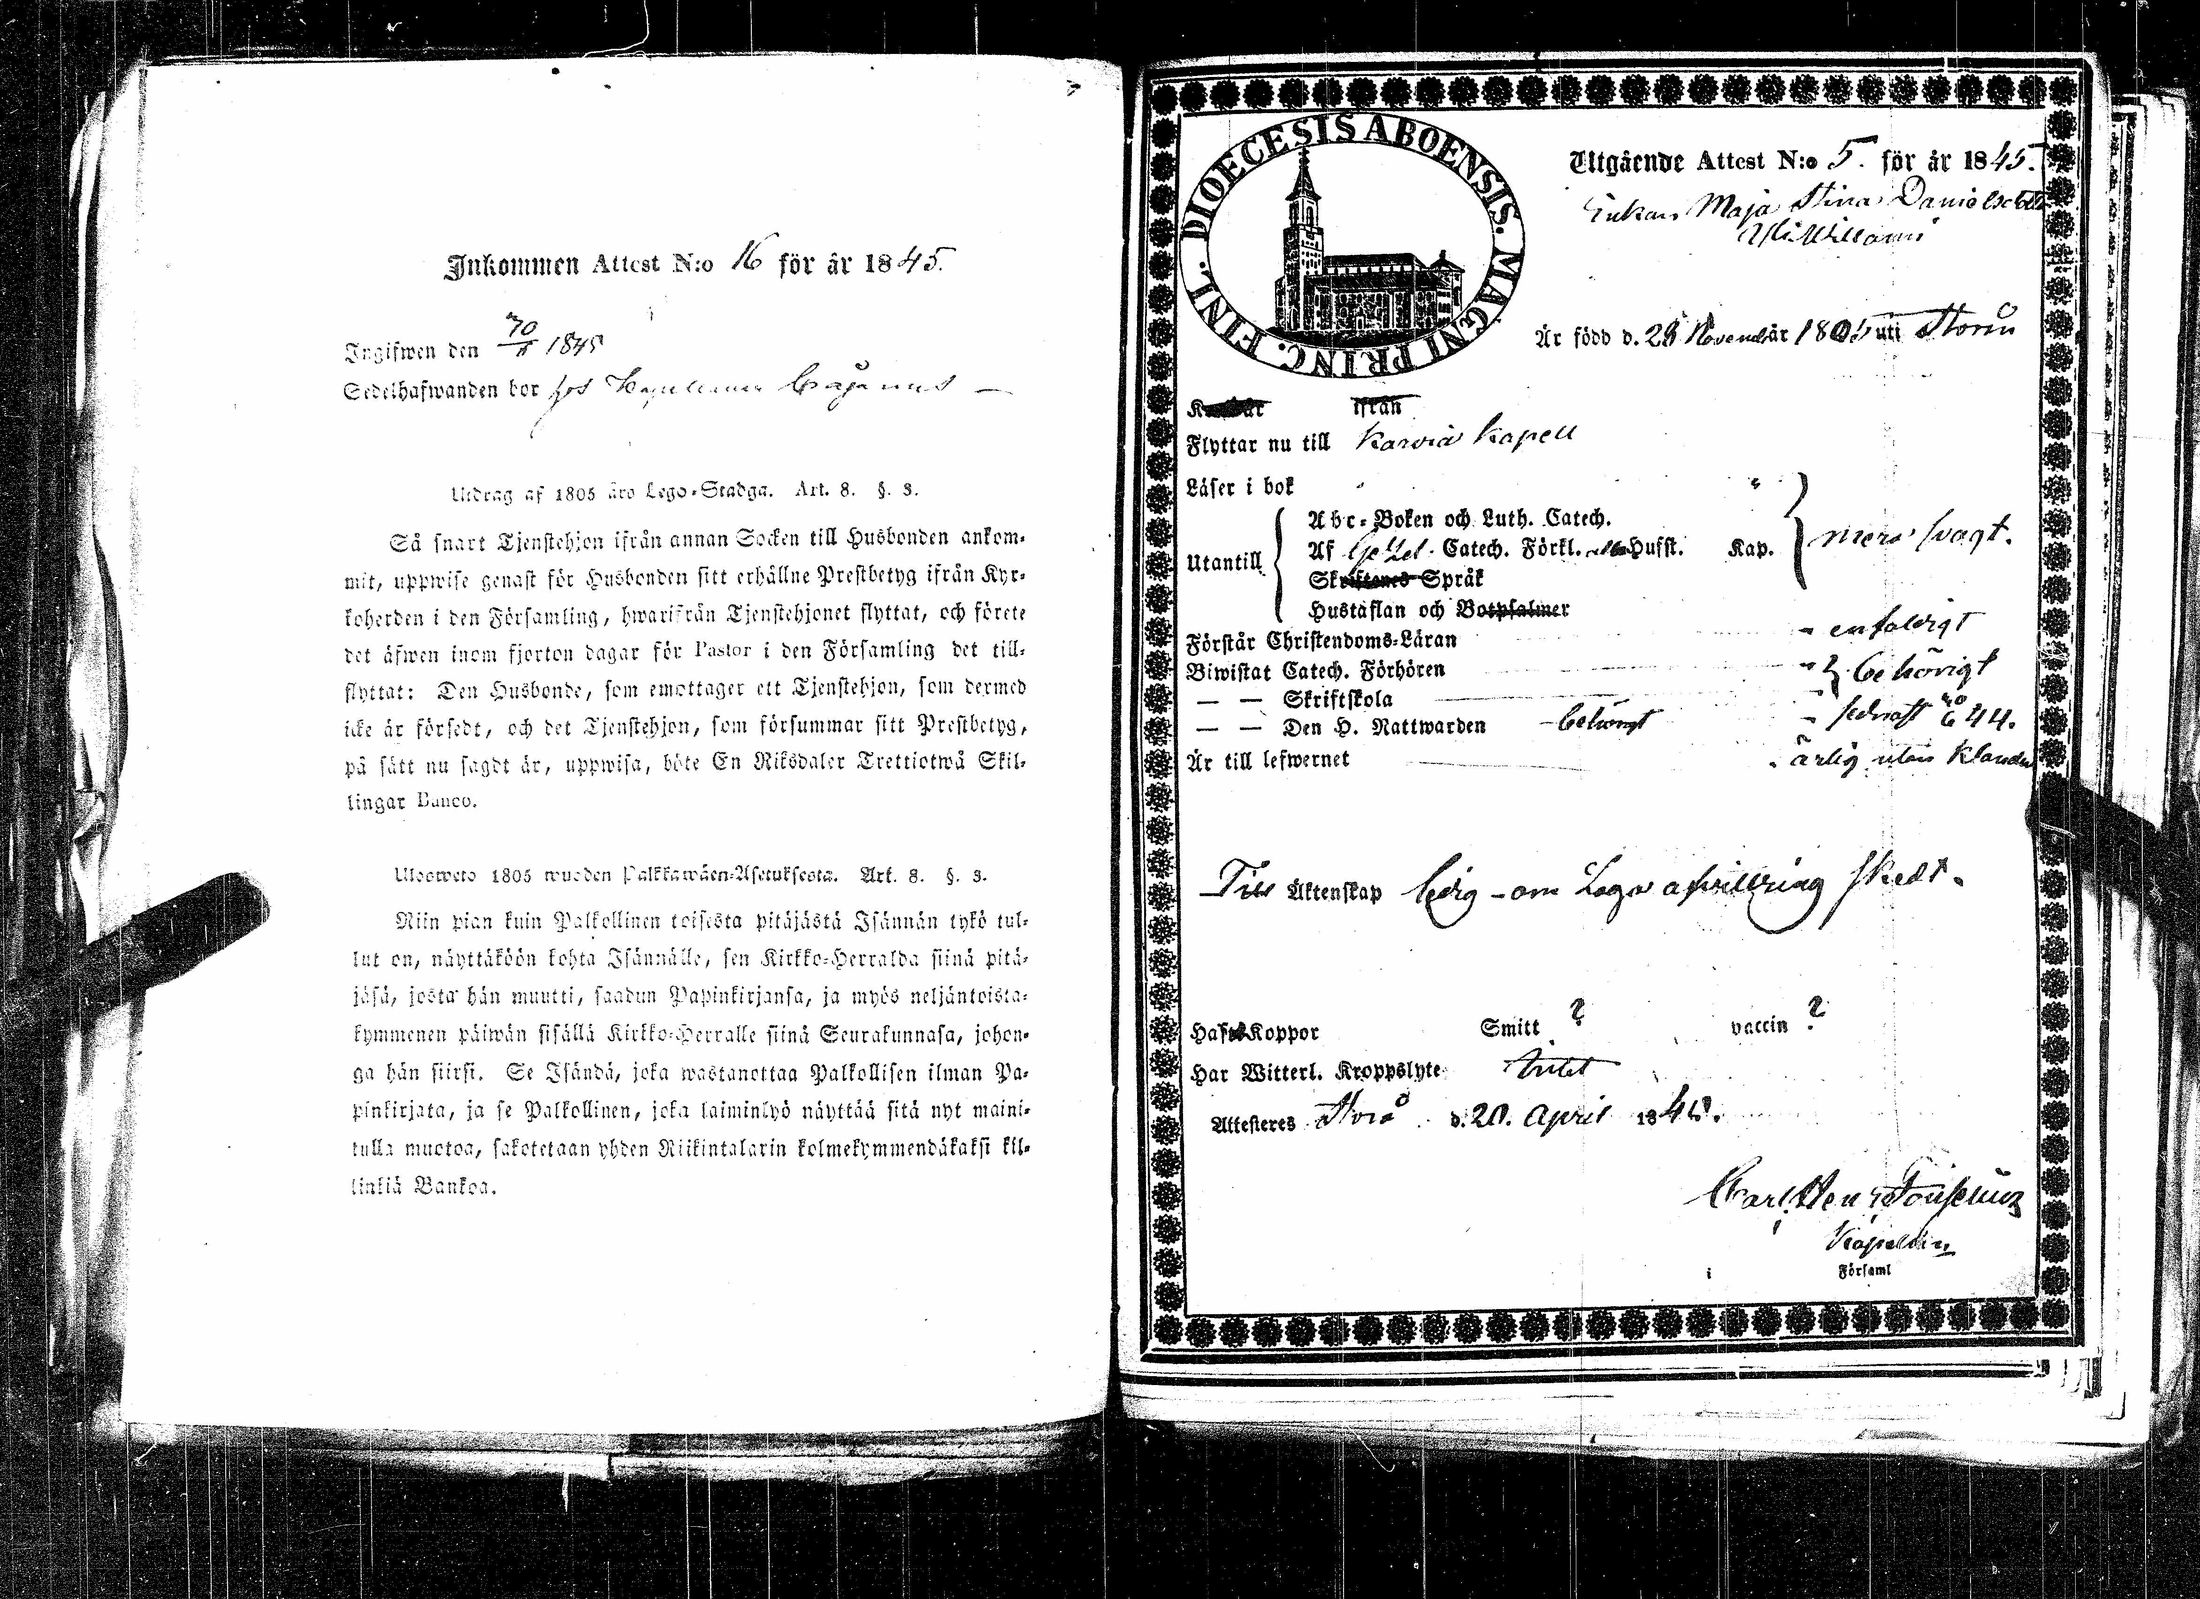 Inkommen Attest N:o 16 för år 1845.
Ingifwen den 1845
Sedelhafwanden bor hos Cajanus —
Utdrag af 1805 års Lego-Stadga. Art. 8. §. 3.
Så snart Tjenstehjon ifrån annan Socken till Husbonden ankom-
mit, uppwise genast för Husbonden sitt erhållne Prestbetyg ifrån Kyr-
koherden i den Församling, hwarifrån Tjenstehjonet flyttat, och förete
det äfwen inom fjorton dagar för Pastor i den Församling det till-
flyttat: Den Husbonde, som emottager ett Tjenstehjon, som dermed
icke är försedt, och det Tjenstehjon, som försummar sitt Prestbetyg,
på sätt nu sagdt är, uppwisa, böte En Riksdaler Trettiotwå Skil-
lingar Banco.
Ulosweto 1805 wuoden Palkkawäen-Asetuksesta. Art. 8. §. 3.
Niin pian kuin Palkollinen toisesta pitäjästä Isännän tykö tul-
lut on, näyttäköön kohta Isännälle, sen Kirkko-Herralda siinä pitä-
jäsä, josta hän muutti, saadun Papinkirjansa, ja myös neljäntoista-
kymmenen päiwän sisällä Kirkko-Herralle siinä Seurakunnasa, johon-
ga hän siirsi. Se Isändä, joka wastanottaa Palkollisen ilman Pa-
pinkirjata, ja se Palkollinen, joka laiminlyö näyttää sitä nyt maini-
tulla muotoa, sakotetaan yhden Riikintalarin kolmekymmendäkaksi kil-
linkiä Bankoa.
DIOECESIS ABOENSIS. MAGNI PRINC. FINL.
Utgående Attest N:o 5. för år 1845.
Enkan Maja Stina Danielsdotter
Är född d. 29 November år 1805 uti Storå
Kom år ifrån
Flyttar nu till Karvia Kapell
Läser i bok
Utantill
Abc-Boken och Luth. Catech.
Af Gezel. Catech. Förkl. Husst. Kap. mera svagt.
Skriftenes Språk
Hustaflan och Botpsalmer
Förstår Christendoms-Läran - enfaldigt
Biwistat Catech. Förhören behörigt
— — Skriftskola
— — Den H. Nattwarden behörigt - sednast 44.
Är till lefwernet ärlig utan klander
Till Äktenskap ledig - om Laga afvittring skedt.
Haft Koppor Smitt ? vaccin ?
Har Witterl. Kroppslyte intet
Attesteres Storå d. 20. April 1845.
Carl Hen
Kapellan
i Församl